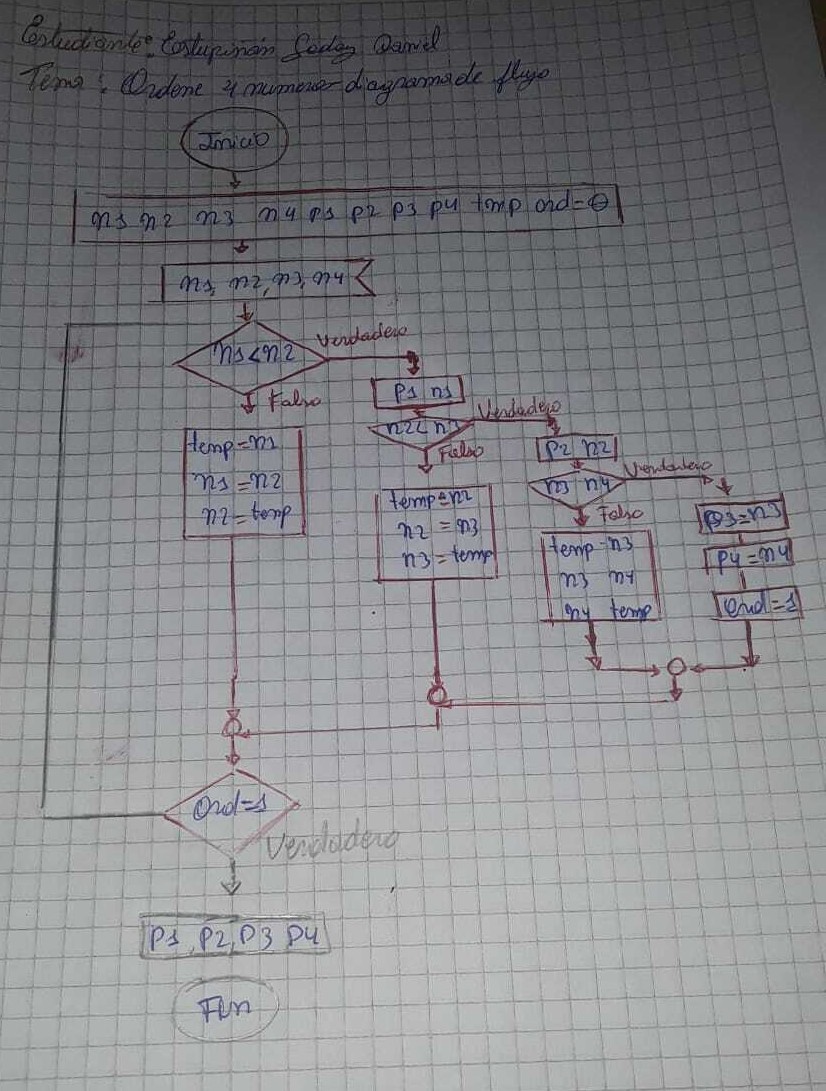 Estudiante: Estupiñán Godoy Daniel
Tema: Ordene 4 numeros diagrama de flujo
Inicio
n1 n2 n3 n4 p1 p2 p3 p4 tmp ord=0
n1, n2, n3, n4
n1<n2
Verdadero
Falso
P1 n1
temp=n1
n1=n2
n2=temp
n2< n3
Verdadero
Falso
P2 n2
temp=n2
n2 = n3
n3=temp
n3 n4
Verdadero
Falso
temp=n3
n3 n4
n4 temp
p3=n3
p4=n4
Ord=1
Ord=1
Verdadero
P1 P2, P3 P4
Fin